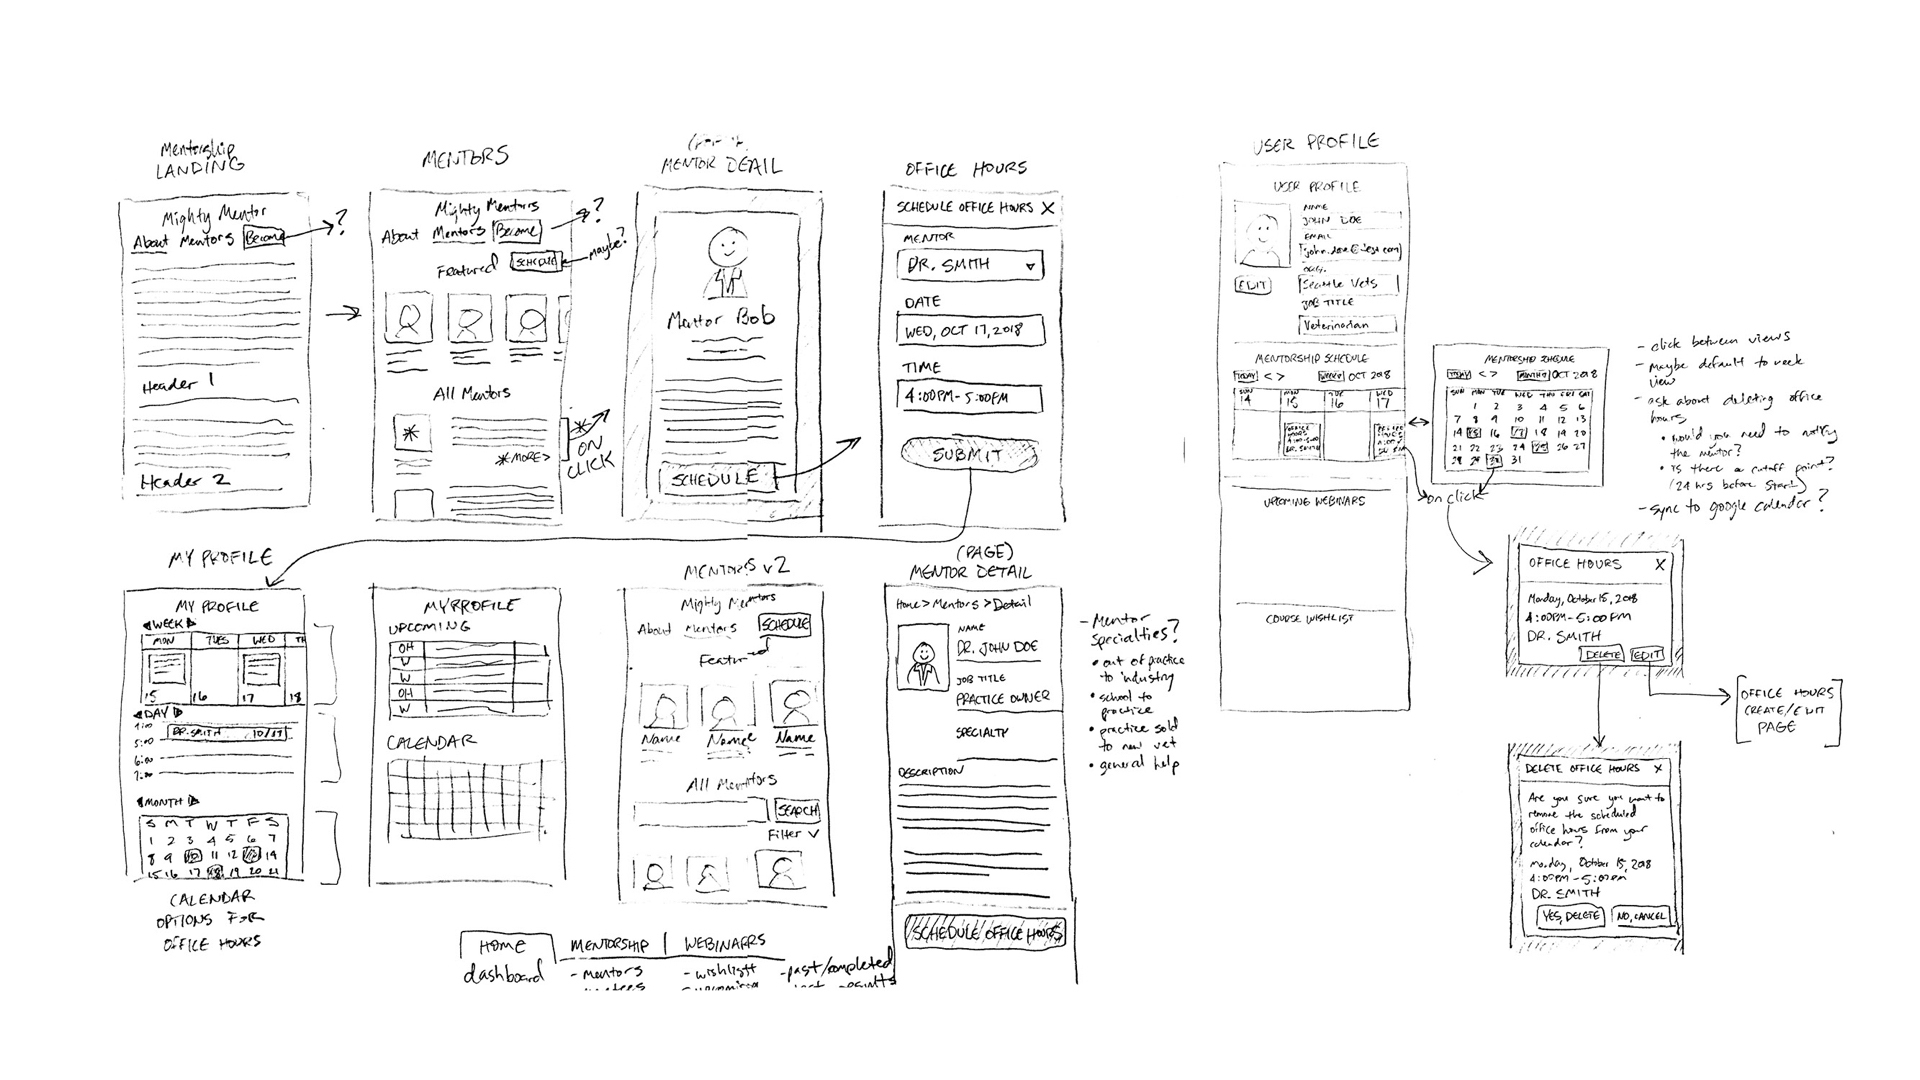 Mentorship
LANDING
Mighty Mentor
About Mentors Become
?
Header 1
Header 2
MENTORS
Mighty Mentors
?
About Mentors Become
maybe?
Featured SCHEDULE
All Mentors
*
*MORE>
*
ON
CLICK
MENTOR DEAIL
Mentor Bob
SCHEDULE
OFFICE HOURS
SCHEDULE OFFICE HOURS X
MENTOR
DR. SMITH
DATE
WED, OCT 17, 2018
TIME
4:00PM-5:00PM
SUBMIT
MY PROFILE
MY PROFILE
WEEK
MON TUES WED TH
15 16 17 18
DAY
5:00 DR. SMITH 10/17
6:00
7:00
MONTH
S M T W T F S
1 2 3 4 5 6 7
8 9 10 11 12 13 14
15 16 17 18 19 20 21
CALENDAR
OPTIONS FOR
OFFICE HOURS
MY PROFILE
UPCOMING
OH
W
W
OH
W
CALENDAR
MENTORS v2
Mighty Mentors
About Mentors SCHEDULE
Featured
Name Name Name
All Mentors
SEARCH
Filter
(PAGE)
MENTOR DETAIL
Home > Mentors > Detail
NAME
DR. JOHN DOE
JOB TITLE
PRACTICE OWNER
SPECIALTY
DESCRIPTION
SCHEDULE OFFICE HOURS
- Mentor
specialties?
• out of practice
to industry
• school to
practice
• practice sold
to new vet
• general help
HOME MENTORSHIP WEBINARRS
dashboard - mentors - wishlist - past/completed
USER PROFILE
USER PROFILE
NAME
JOHN DOE
EMAIL
john.doe@test.com
EDIT
Seattle Vets
JOB TITLE
Veterinarian
MENTORSHIP SCHEDULE
TODAY < > WEEK OCT 2018
SUN MON TUE WED
14 15 16 17
OFFICE
HOURS
4:00-5:00
DR. SMITH
UPCOMING WEBINARS
COURSE WISHLIST
MENTORSHIP SCHEDULE
TODAY < > MONTH OCT 2018
SUN MON TUE WED THU FRI SAT
1 2 3 4 5 6
7 8 9 10 11 12 13
14 15 16 17 18 19 20
21 22 23 24 25 26 27
28 29 30 31
on click
- click between views
- Maybe default to week
view
- ask about deleting office
hours
• would you need to notify
the mentor?
• is there a cutoff point?
(24 hrs before start)
- sync to google calendar?
OFFICE HOURS X
Monday, October 15, 2018
4:00PM-5:00PM
DR. SMITH
DELETE EDIT
OFFICE HOURS
CREATE/EDIT
PAGE
DELETE OFFICE HOURS X
Are you sure you want to
remove the scheduled
office hours from your
calendar?
Monday, October 15, 2018
4:00PM-5:00PM
DR. SMITH
YES, DELETE NO, CANCEL